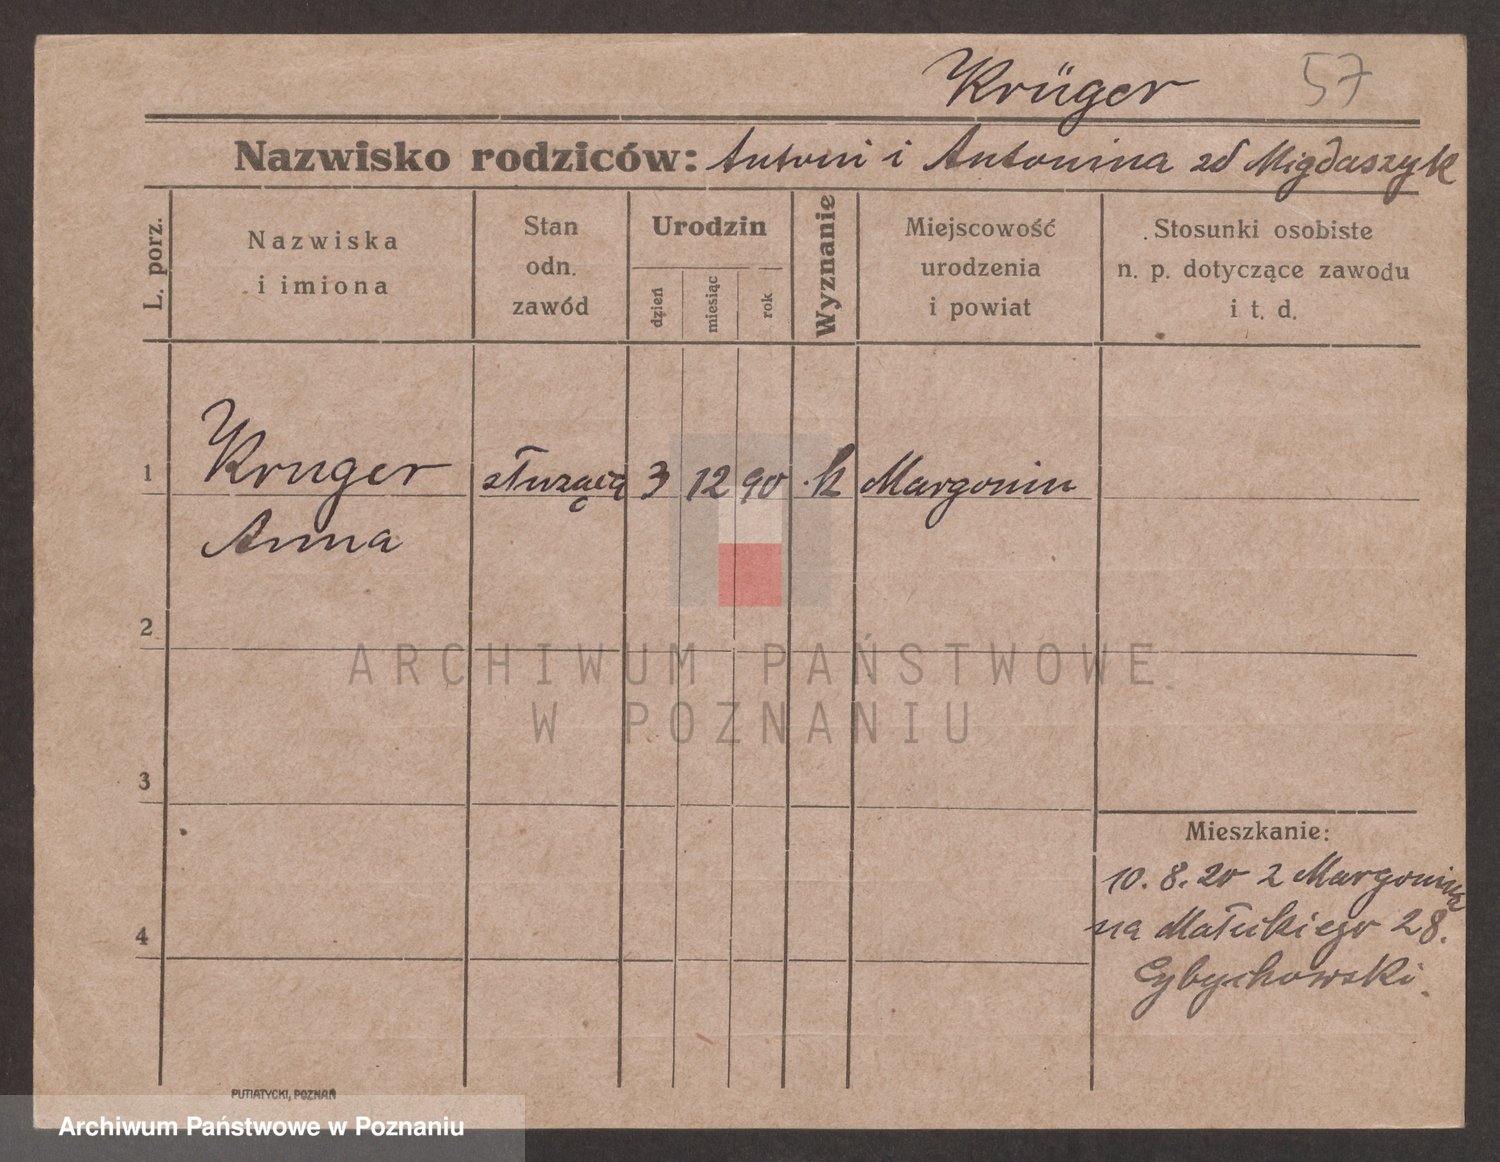 Krüger 57
Nazwisko rodziców: Antoni i Antonina zd Migdaszyk
L. porz.
Nazwiska
i imiona
Stan
odn.
zawód
Urodzin
dzień
miesiąc
rok
Wyznanie
Miejscowość
urodzenia
i powiat
Stosunki osobiste
n. p. dotyczące zawodu
i t. d.
1 Kruger służąca 3 12 90 k Margonin
Anna
2
ARCHIWUM PAŃSTWOWE
W POZNANIU
3
Mieszkanie:
10. 8. 20 z Margonina
na Małeckiego 28.
4
Cybychowski.
PUTIATYCKI, POZNAŃ
Archiwum Państwowe w Poznaniu